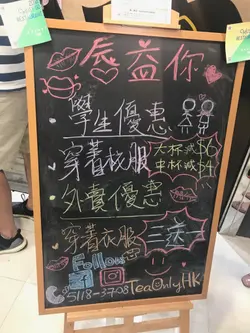 唇益你
學生優惠
穿著校服
大杯減$6
中杯減$4
外賣優惠
穿著衣服
三送一
Follow
5118-3708
TeaOnlyHK